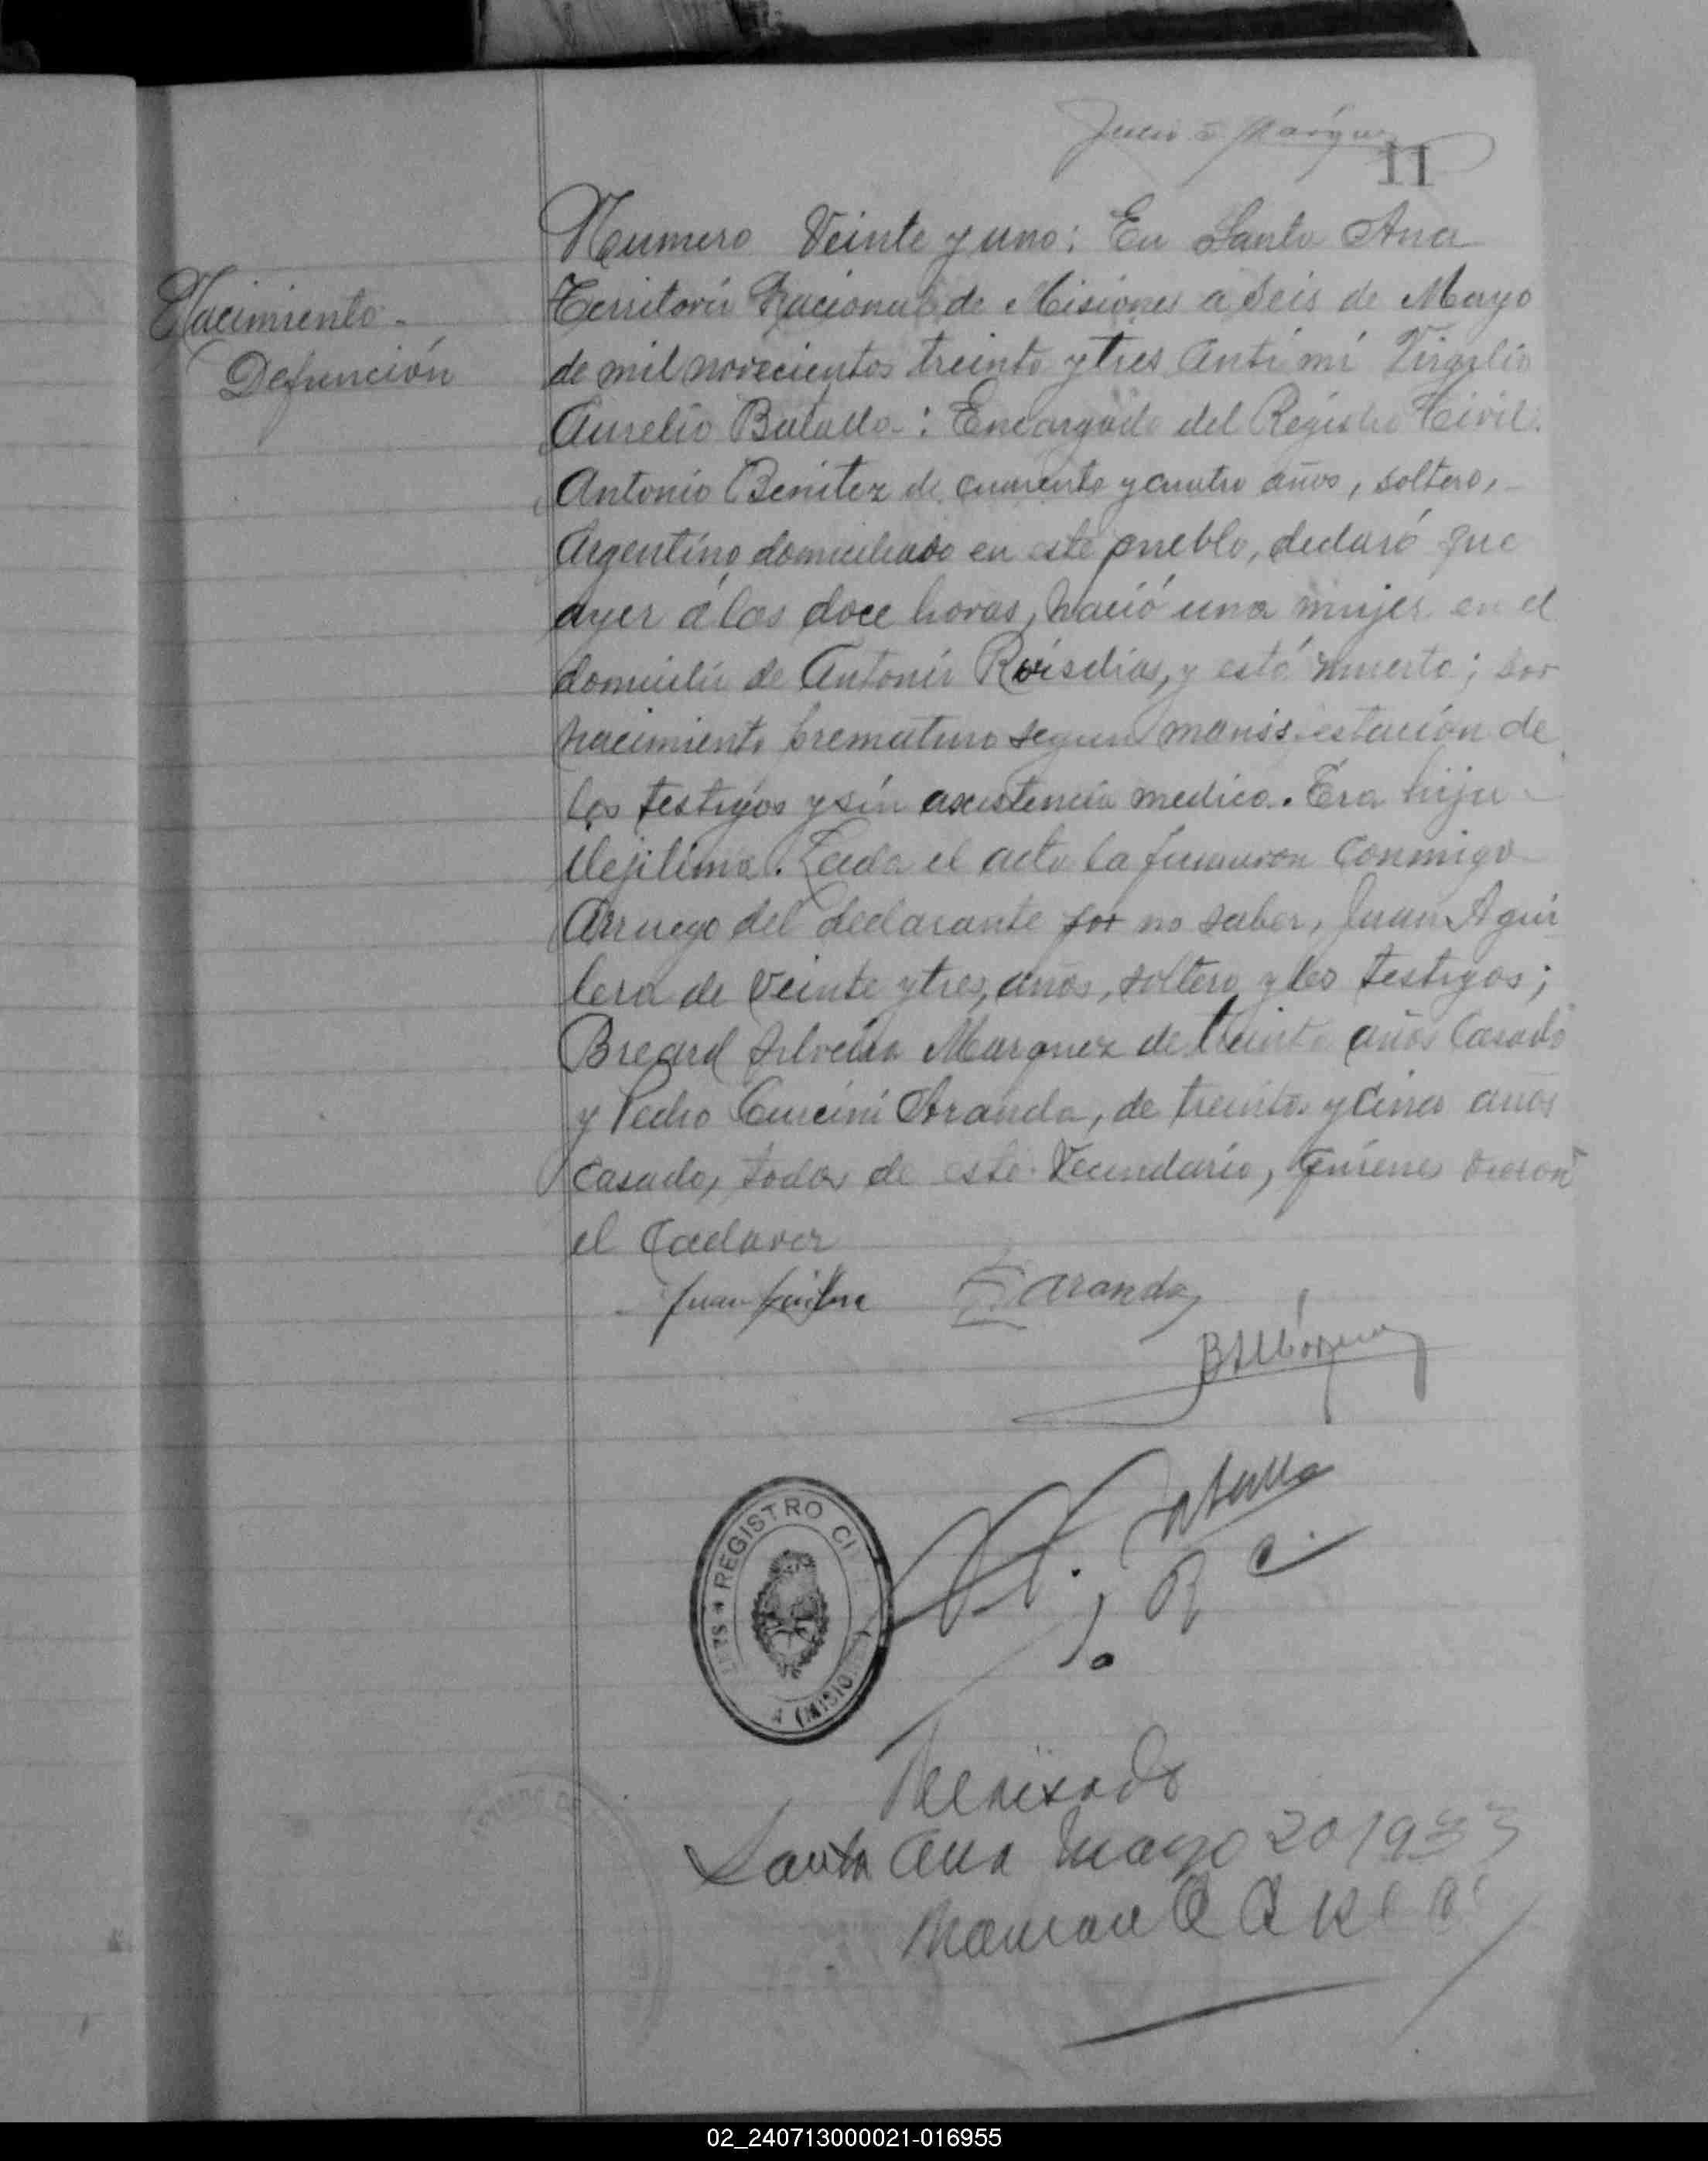 11
Numero Veinte y uno: En Santa Ana
Nacimiento -
Territorio Nacional de Misiones a seis de Mayo
Defunción
de mil novecientos treinta y tres Anti mí Virgilio
Aurelio Batalla: Encargado del Registro Civil.
Antonio Benitez de cuarenta y cuatro años, soltero,
Argentino domiciliado en este pueblo, declaró que
ayer á las doce horas, nació una mujer en el
domicilio de Antonio y está muerta; por
nacimiento prematuro segun manisfestación de
los testigos y sin axistencia medica. Era hija
ilejitima. Leida el acta la firmaron conmigo
Arruego del declarante por no saber, Juan Agui
lera de veinte y tres, años, soltero y los testigos;
Breard Silveira Marquez de treinta años Casado
y Pedro Aranda, de treinta y cinco años
casado, todos de este Vecindario, quienes vieron
el Cadaver
Juan Aguilera Aranda
REGISTRO CI
Revisado
Santa Ana Mayo 20/933